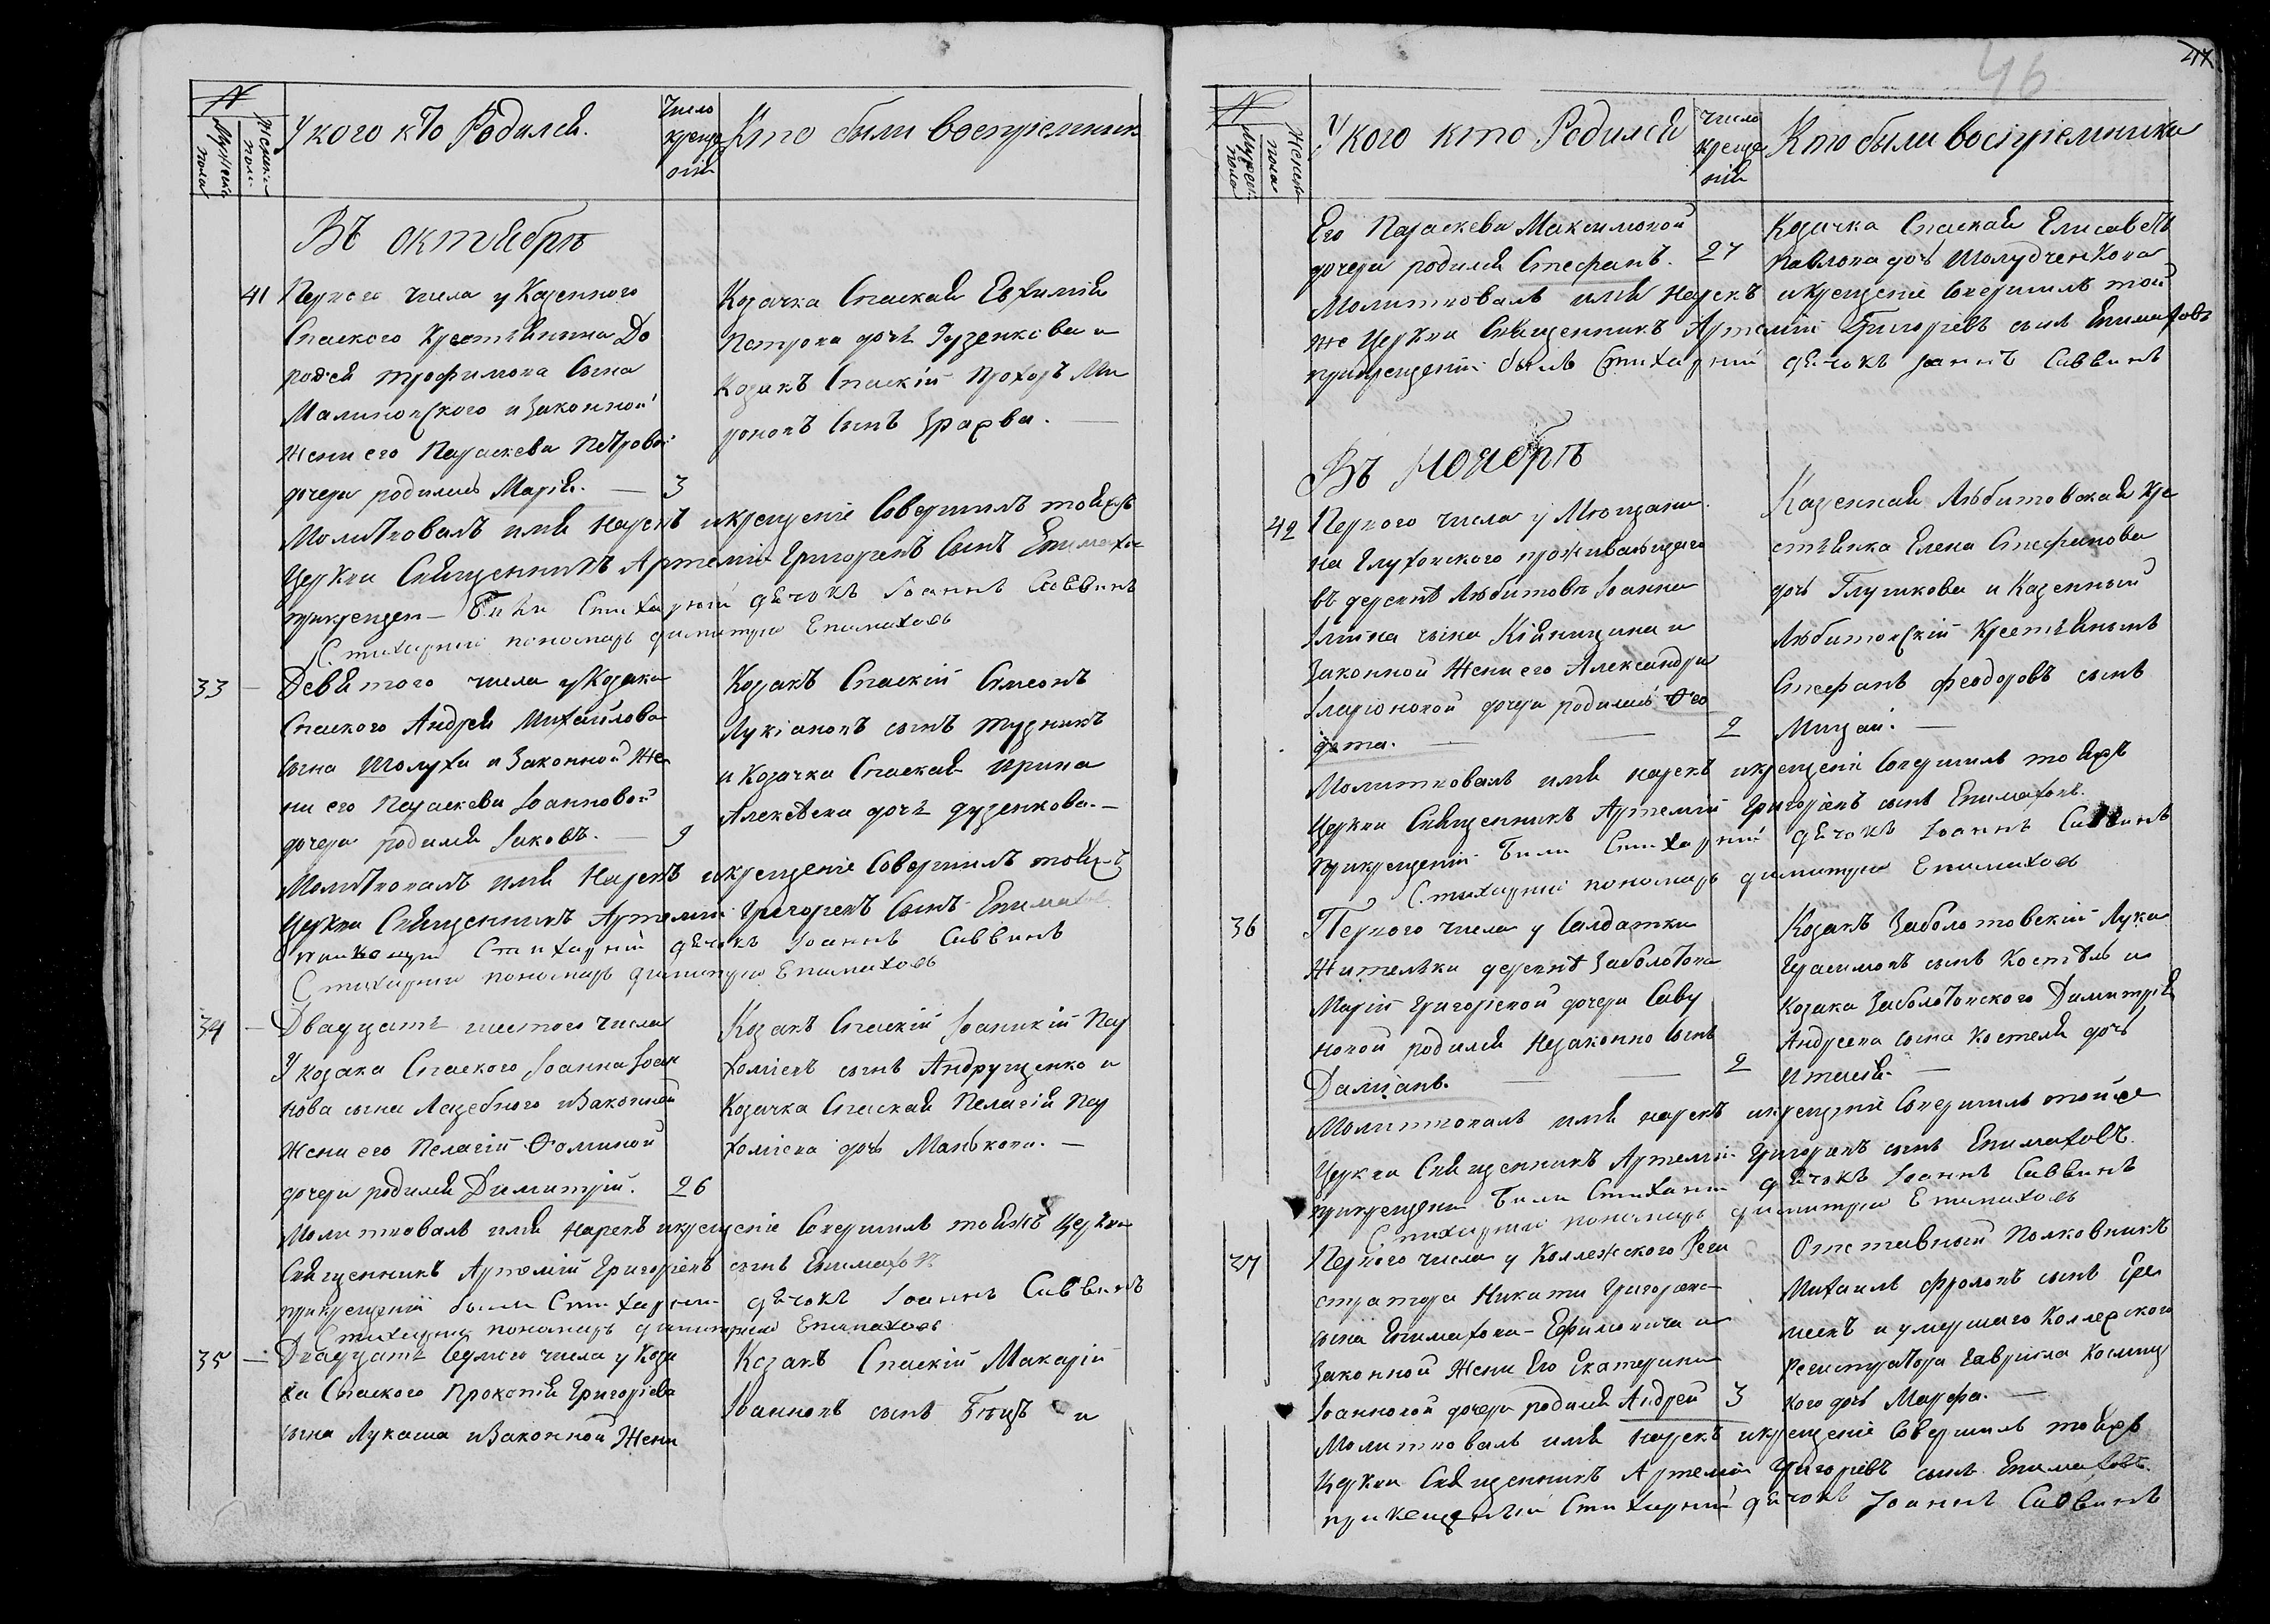 N
Мужеск пола
Женска пола
У кого кто Родился.
Число крещенія
Кто были воспріемники
Въ октябрѣ
41
Перваго числа у Казенного
Спаского Крестьянина До
рофея Трофимова Сына
Малиновского и Законной
Жени его Параскеви Петровой
дочери родилась Марія. — 3
Козачка Спаская Евфимія
Петрова дочь Гузенкова и
Козакъ Спаскій Прохоръ Ми
роновъ Сынъ
Молитвовалъ имя Нарекъ и крещеніе Совершилъ тояжъ
Церкви Священникъ Артемій Григоріевъ Сынъ Епимахов
Стихарній дячокъ Іоаннъ Саввинъ
Стихарній пономарь Димитрій Епимаховъ
33 —
Девятого числа у Козака
Спаского Андрея Михайлова
сына Шолуха и Законной Же
ни его Параскеви Іоанновой
дочери родился Іаковъ. — 9
Козакъ Спаскій Симеонъ
Лукіановъ сынъ Тудникъ
и Козачка Спаская Ирина
Алексѣева дочь Дузенкова. —
Молитвовалъ имя Нарекъ и крещеніе Совершилъ тояжъ
Церкви Священникъ Артемій Григоріевъ Сынъ Епимахов
Стихарній дячокъ Іоаннъ Саввинъ
Стихарній пономарь Димитрій Епимаховъ
34 —
Двадцать шестого числа
У козака Спаского Іоанна Іоан
нова сына Лазебного и Законной
Жени его Пелагіи Ѳоминой
дочери родился Димитрій. 26
Козакъ Спаскій Іоаникій Пар
ховіевъ сынъ Андрущенко и
Козачка Спаская Пелагія Пар
дочь Манькова. —
Молитвовалъ имя Нарекъ и крещеніе Совершилъ тояжъ Церкви
Священникъ Артемій Григоріевъ сынъ Епимаховъ
при крещеніи были Стихарній дячокъ Іоаннъ Саввинъ
Стихарній пономарь Димитрій Епимаховъ
35 —
Двадцать Седмого числа у Коза
ка Спаского Прокопія Григоріева
сына Лукаша и Законной Жени
Козакъ Спаскій Макарій
Іоанновъ сынъ и
46
47
N
Мужеск пола
Женска пола
У кого кто Родился
Число крещеній
Кто были воспріемники
Его Параскеви Максимовой
дочери родился Стефанъ. 27
Козачка Спаская Елисаветъ
Павлова дочь Шолудченкова
Молитвовалъ имя Нарекъ и крещеніе Совершилъ той
же Церкви Священникъ Артемій Григоріевъ сынъ Епимаховъ
при крещеніи былъ Стихарный дячокъ Іоаннъ Саввинъ
Въ Ноябрѣ
42
Перваго числа у Мѣщани
на Глуховского проживающаго
въ деревнѣ Любитовѣ Іоанна
Іліина сына и
Законной Жени его Александри
Іларіоновой дочери родилась Ѳео
дота. — 2
Казенная Любитовская Кре
стьянка Елена Стефанова
дочь Глушкова и Казенный
Любитовскій Крестьянинъ
Стефанъ Феодоровъ сынъ
Мицай. —
Молитвовалъ имя нарекъ и крещеніе Совершилъ тояжъ
Церкви Священникъ Артемій Григоріевъ сынъ Епимаховъ.
При крещеніи били Стихарній дячокъ Іоаннъ Саввинъ
Стихарній пономарь Димитрій Епимаховъ
36
Перваго числа у Салдатки
Жителки деревнѣ Заболотова
Маріи Григоріевой дочери Саву
новой родился Незаконно Сынъ
Даміанъ. — 2
Козакъ Заболотовскій Лука
Герасимовъ сынъ Костѣль и
козака Заболотовского Димитрія
Андреева сына Костеля дочь
Молитвовалъ имя нарекъ и крещеніе Совершилъ той же
Церкви Священникъ Артемій Григоріевъ сынъ Епимаховъ.
при крещеніи били Стихарній дячокъ Іоаннъ Саввинъ
Стихарній пономарь Димитрій Епимаховъ
37
Перваго числа у Коллежского Реги
стратора Никити Григоріева
сына Епимахова-Ефимовича и
Законной Жени Его Екатерини
Іоанновой дочери родился Андрей 3
Отставной Полковникъ
Михаилъ Фроловъ сынъ Ере
и умершаго Коллежского
Регистратора Гавріила
кого дочь Марфа. —
Молитвовалъ имя Нарекъ и крещеніе Совершилъ тояжъ
Церкви Священникъ Артемій Григоріевъ сынъ Епимаховъ.
при крещеніи Стихарний дячокъ Іоаннъ Саввинъ